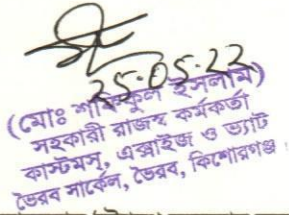 25.05.22
(মোঃ শফিকুল ইসলাম)
সহকারী রাজস্ব কর্মকর্তা
কাস্টমস, এক্সাইজ ও ভ্যাট
ভৈরব সার্কেল, ভৈরব, কিশোরগঞ্জ।